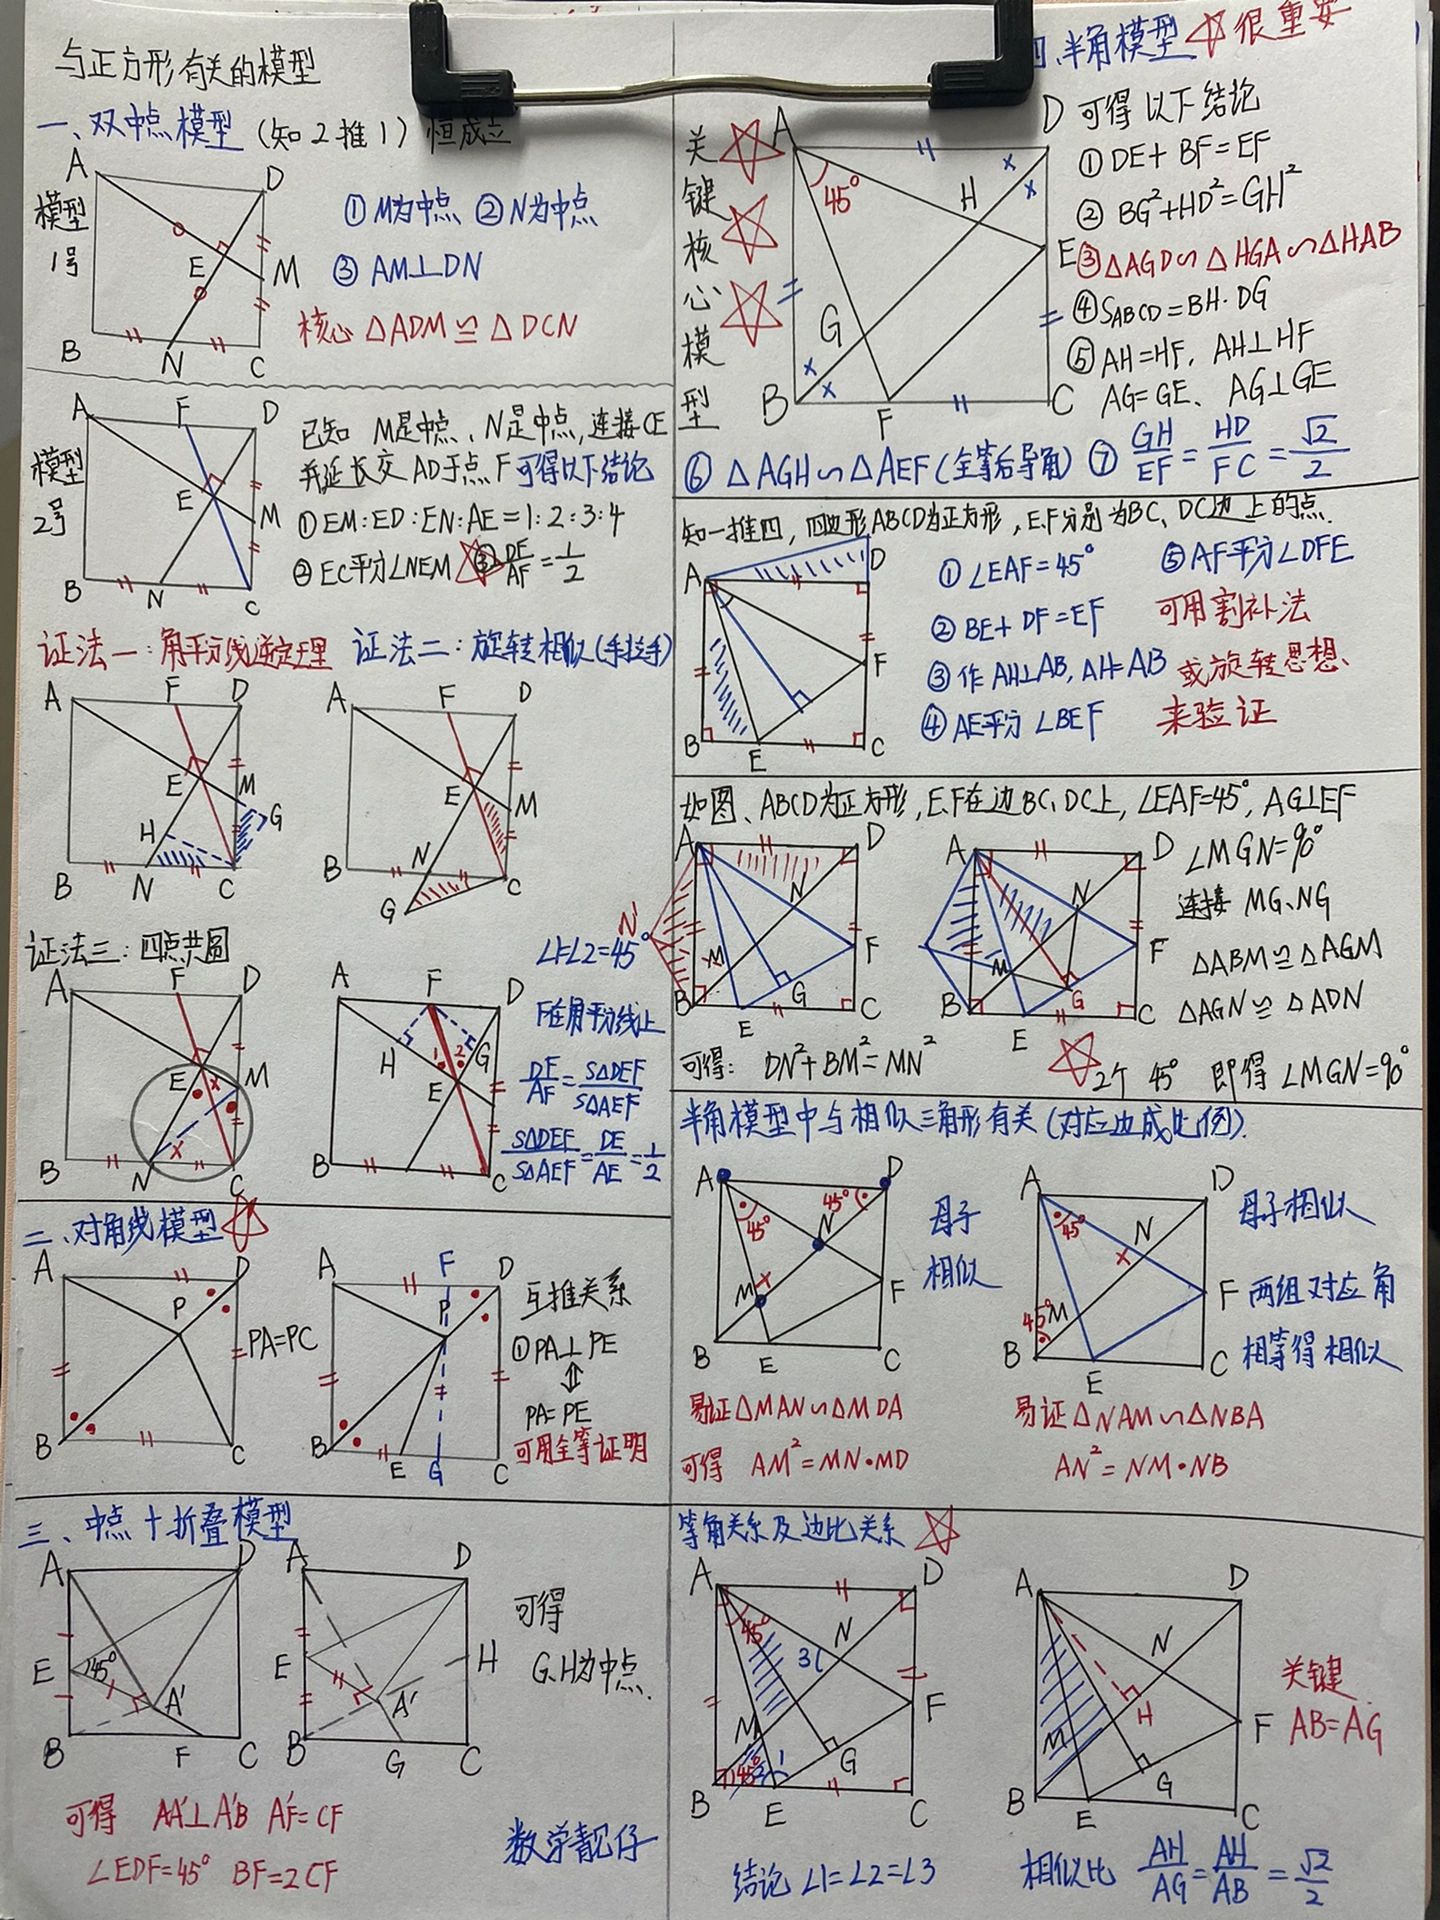 与正方形有关的模型
一、双中点模型（知2推1）恒成立
模型
1号
A
D
E
M
B
N
C
①M为中点 ②N为中点
③ AM⊥DN
核心 △ADM≌△DCN
模型
2号
A
F
D
E
M
B
N
C
已知 M是中点、N是中点,连接CE
并延长交AD于点F可得以下结论
①EM:ED:EN:AE=1:2:3:4
②EC平分∠NEM ③DF/AF=1/2
证法一:角平分线逆定理
A F D
E M
H G
B N C
证法二:旋转相似(手拉手)
A F D
E M
B N C
G
证法三:四点共圆
A F D
E M
B N C
∠1=∠2=45°
A F D
H G
1 2
E
B C
F在角平分线上
DF/AF=S△DEF/S△AEF
S△DEF/S△AEF=DE/AE=1/2
二、对角线模型
A D
P
B C
PA=PC
A F D
P
B E G C
互推关系
①PA⊥PE
⇕
PA=PE
可用全等证明
三、中点+折叠模型
A D
E 45°
A'
B F C
可得 AA'⊥A'B A'F=CF
∠EDF=45° BF=2CF
A D
E H
A'
B G C
可得
G.H为中点.
数学靓仔
四、半角模型 很重要
关键核心模型
A D
45° H
E
G
B F C
可得以下结论
①DE+BF=EF
②BG²+HD²=GH²
③△AGD∽△HGA∽△HAB
④SABCD=BH·DG
⑤AH=HF, AH⊥HF
AG=GE、AG⊥GE
⑥△AGH∽△AEF(全等后导角) ⑦GH/EF=HD/FC=√2/2
知一推四，四边形ABCD为正方形，E.F分别为BC、DC边上的点.
A D
F
B E C
①∠EAF=45° ⑤AF平分∠DFE
②BE+DF=EF 可用割补法
③作AH⊥AB,AH=AB 或旋转思想、
④AE平分∠BEF 来验证
如图、ABCD为正方形,E.F在边BC、DC上,∠EAF=45°,AG⊥EF
A D
N' N
M F
G
B E C
可得: DN²+BM²=MN²
A D
N
M F
G
B E C
∠MGN=90°
连接MG、NG
△ABM≌△AGM
△AGN≌△ADN
2个45° 即得∠MGN=90°
半角模型中与相似三角形有关(对应边成比例).
A D
45° 45°
N
M F
B E C
母子
相似
易证△MAN∽△MDA
可得 AM²=MN·MD
A D
45° N
45° M F
B E C
母子相似
两组对应角
相等得相似
易证△NAM∽△NBA
AN²=NM·NB
等角关系及边比关系
A D
45° N
3
M F
G
45° 2 1
B E C
结论 ∠1=∠2=∠3
A D
N
H
M F
G
B E C
关键
AB=AG
相似比 AH/AG=AH/AB=√2/2